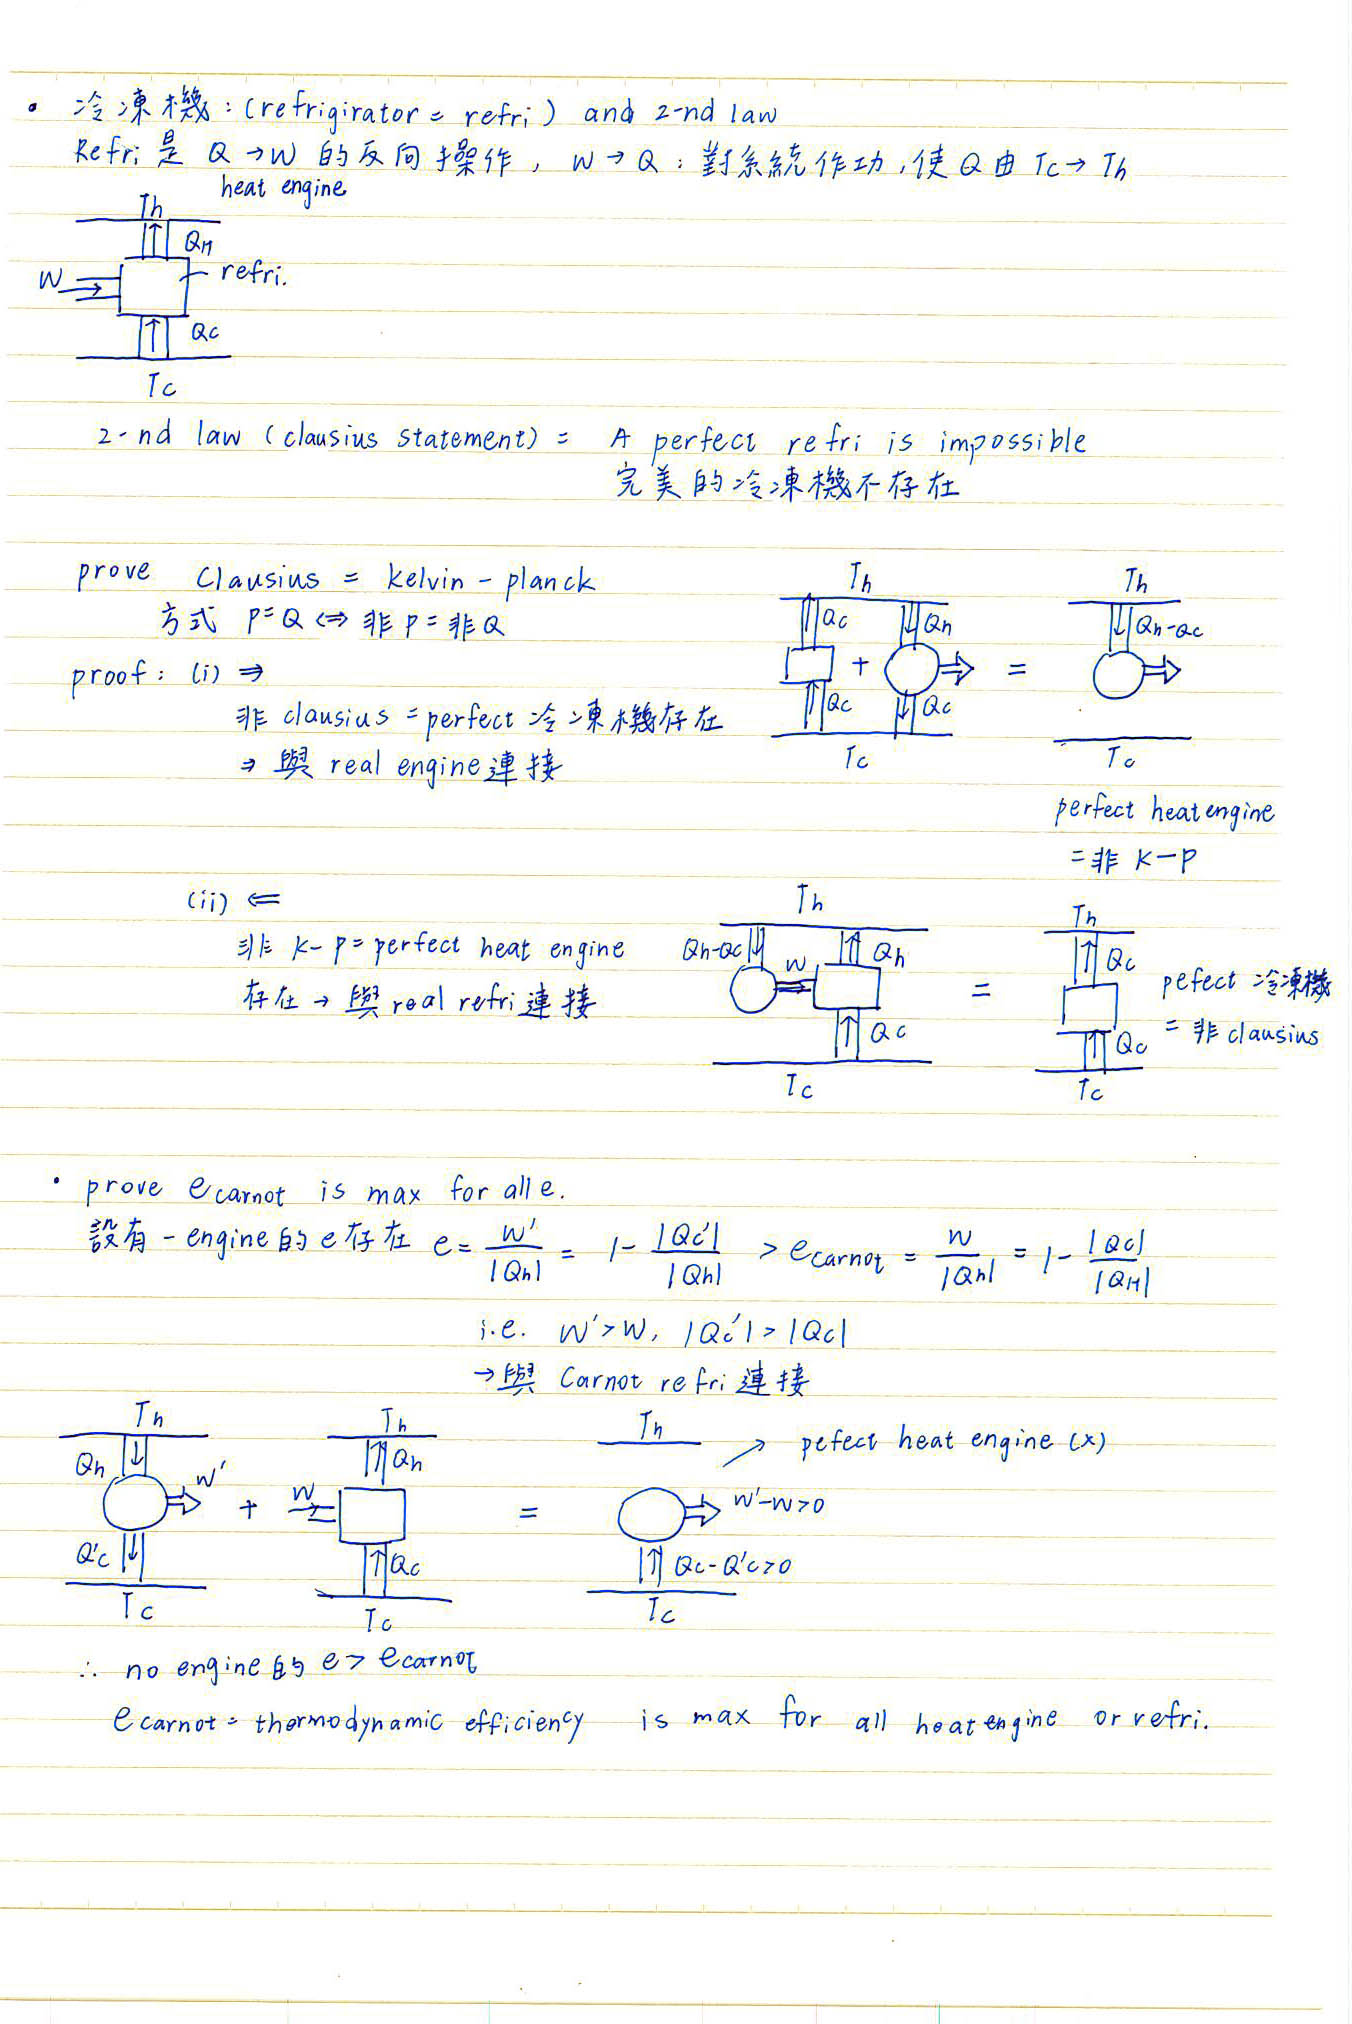 • 冷凍機：(refrigirator = refri) and 2-nd law
Refri 是 Q→W 的反向操作，W→Q：對系統作功，使 Q 由 Tc→Th
heat engine
Th
QH
W
refri.
Qc
Tc
2-nd law (clausius statement) = A perfect refri is impossible
完美的冷凍機不存在
prove Clausius = kelvin-planck
方式 P=Q ⇔ 非P=非Q
proof: (i) ⇒
非 clausius = perfect 冷凍機存在
⇒ 與 real engine 連接
Th Th
Qc Qh Qh-Qc
+ =
Qc Qc
Tc Tc
perfect heat engine
= 非 K-P
(ii) ⇐
非 K-P = perfect heat engine
存在 → 與 real refri 連接
Th Th
Qh-Qc W Qh Qc
= pefect 冷凍機
Qc Qc = 非 clausius
Tc Tc
• prove ecarnot is max for all e.
設有一engine的 e 存在 e = W'/|Qh| = 1-|Qc'|/|Qh| > ecarnot = W/|Qh| = 1-|Qc|/|QH|
i.e. W'>W, |Qc'|>|Qc|
→與 Carnot refri 連接
Th Th Th → pefect heat engine (x)
Qh W' + W Qh = W'-W>0
Q'c Qc Qc-Q'c>0
Tc Tc Tc
∴ no engine的 e > ecarnot
ecarnot = thermodynamic efficiency is max for all heat engine or refri.